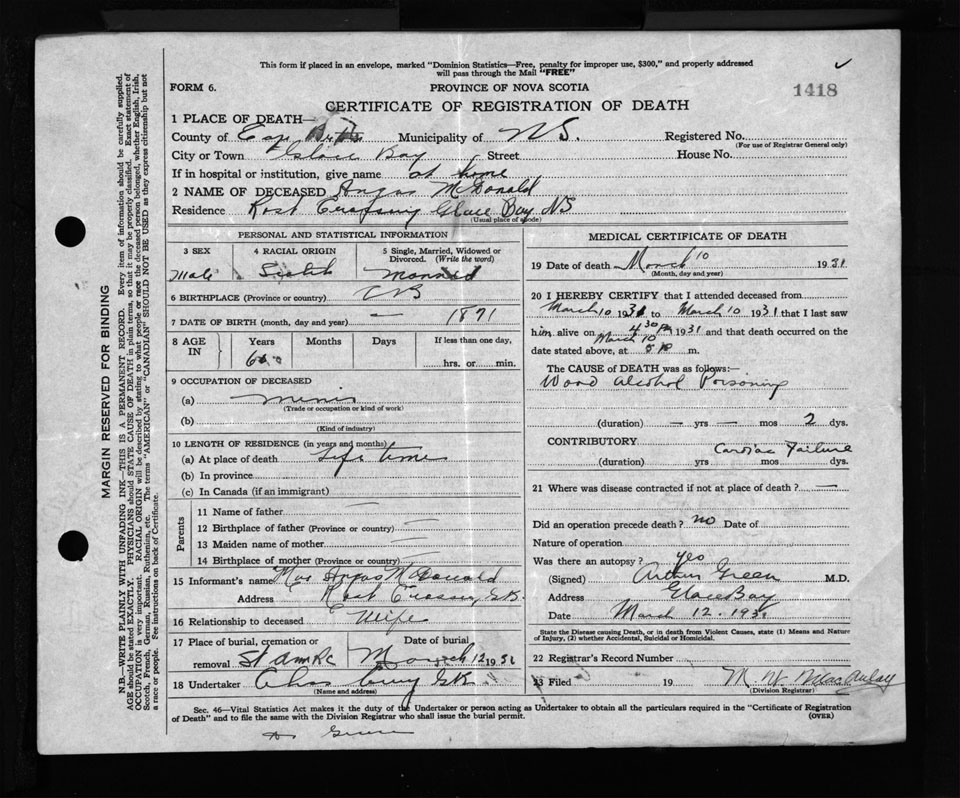 This form if placed in an envelope, marked "Dominion Statistics—Free, penalty for improper use, $300," and properly addressed
will pass through the Mail "FREE"
FORM 6. PROVINCE OF NOVA SCOTIA 1418
CERTIFICATE OF REGISTRATION OF DEATH
1 PLACE OF DEATH—
County of Cape Municipality of NS. Registered No.
(For use of Registrar General only)
City or Town Glace Bay Street House No.
If in hospital or institution, give name at home
2 NAME OF DECEASED Angus McDonald
Residence Glace Bay NS
(Usual place of abode)
PERSONAL AND STATISTICAL INFORMATION
3 SEX 4 RACIAL ORIGIN 5 Single, Married, Widowed or
Divorced. (Write the word)
Male Scotch Married
6 BIRTHPLACE (Province or country) CB
7 DATE OF BIRTH (month, day and year) — 1871
8 AGE IN Years Months Days If less than one day,
60 hrs. or min.
9 OCCUPATION OF DECEASED
(a) Miner
(Trade or occupation or kind of work)
(b)
(Kind of industry)
10 LENGTH OF RESIDENCE (in years and months)
(a) At place of death Life time
(b) In province
(c) In Canada (if an immigrant)
Parents
11 Name of father —
12 Birthplace of father (Province or country) —
13 Maiden name of mother —
14 Birthplace of mother (Province or country) —
15 Informant's name Mrs Angus McDonald
Address
16 Relationship to deceased Wife
17 Place of burial, cremation or Date of burial
removal St March 12 1931
18 Undertaker Chas
(Name and address)
MEDICAL CERTIFICATE OF DEATH
19 Date of death March 10 1931
(Month, day and year)
20 I HEREBY CERTIFY that I attended deceased from
March 10 1931 to March 10 1931 that I last saw
him alive on 4 30 PM 1931 and that death occurred on
March 10
date stated above, at m.
The CAUSE of DEATH was as follows:—
Wood Alcohol Poisoning
(duration) — yrs — mos 2 dys.
CONTRIBUTORY Cardiac Failure
(duration) yrs mos dys.
21 Where was disease contracted if not at place of death? —
Did an operation precede death? no Date of
Nature of operation
Was there an autopsy? Yes
(Signed) Arthur Green M.D.
Address Glace Bay
Date March 12 - 1931
State the Disease causing Death, or in death from Violent Causes, state (1) Means and Nature
of Injury, (2) whether Accidental, Suicidal or Homicidal.
22 Registrar's Record Number
23 Filed 19 MacAulay
(Division Registrar)
Sec. 46—Vital Statistics Act makes it the duty of the Undertaker or person acting as Undertaker to obtain all the particulars required in the "Certificate of Registration
of Death" and to file the same with the Division Registrar who shall issue the burial permit. (OVER)
Green
MARGIN RESERVED FOR BINDING
N.B.—WRITE PLAINLY WITH UNFADING INK—THIS IS A PERMANENT RECORD. Every item of information should be carefully supplied.
AGE should be stated EXACTLY. PHYSICIANS should STATE CAUSE OF DEATH in plain terms, so that it may be properly classified. Exact statement of
OCCUPATION is very important. RACIAL ORIGIN will be described by stating to what people or race the deceased person belonged, whether English, Irish,
Scotch, French, German, Russian, Ruthenian, etc. The terms "AMERICAN" or "CANADIAN" SHOULD NOT BE USED as they express citizenship but not
a race or people. See instructions on back of Certificate.